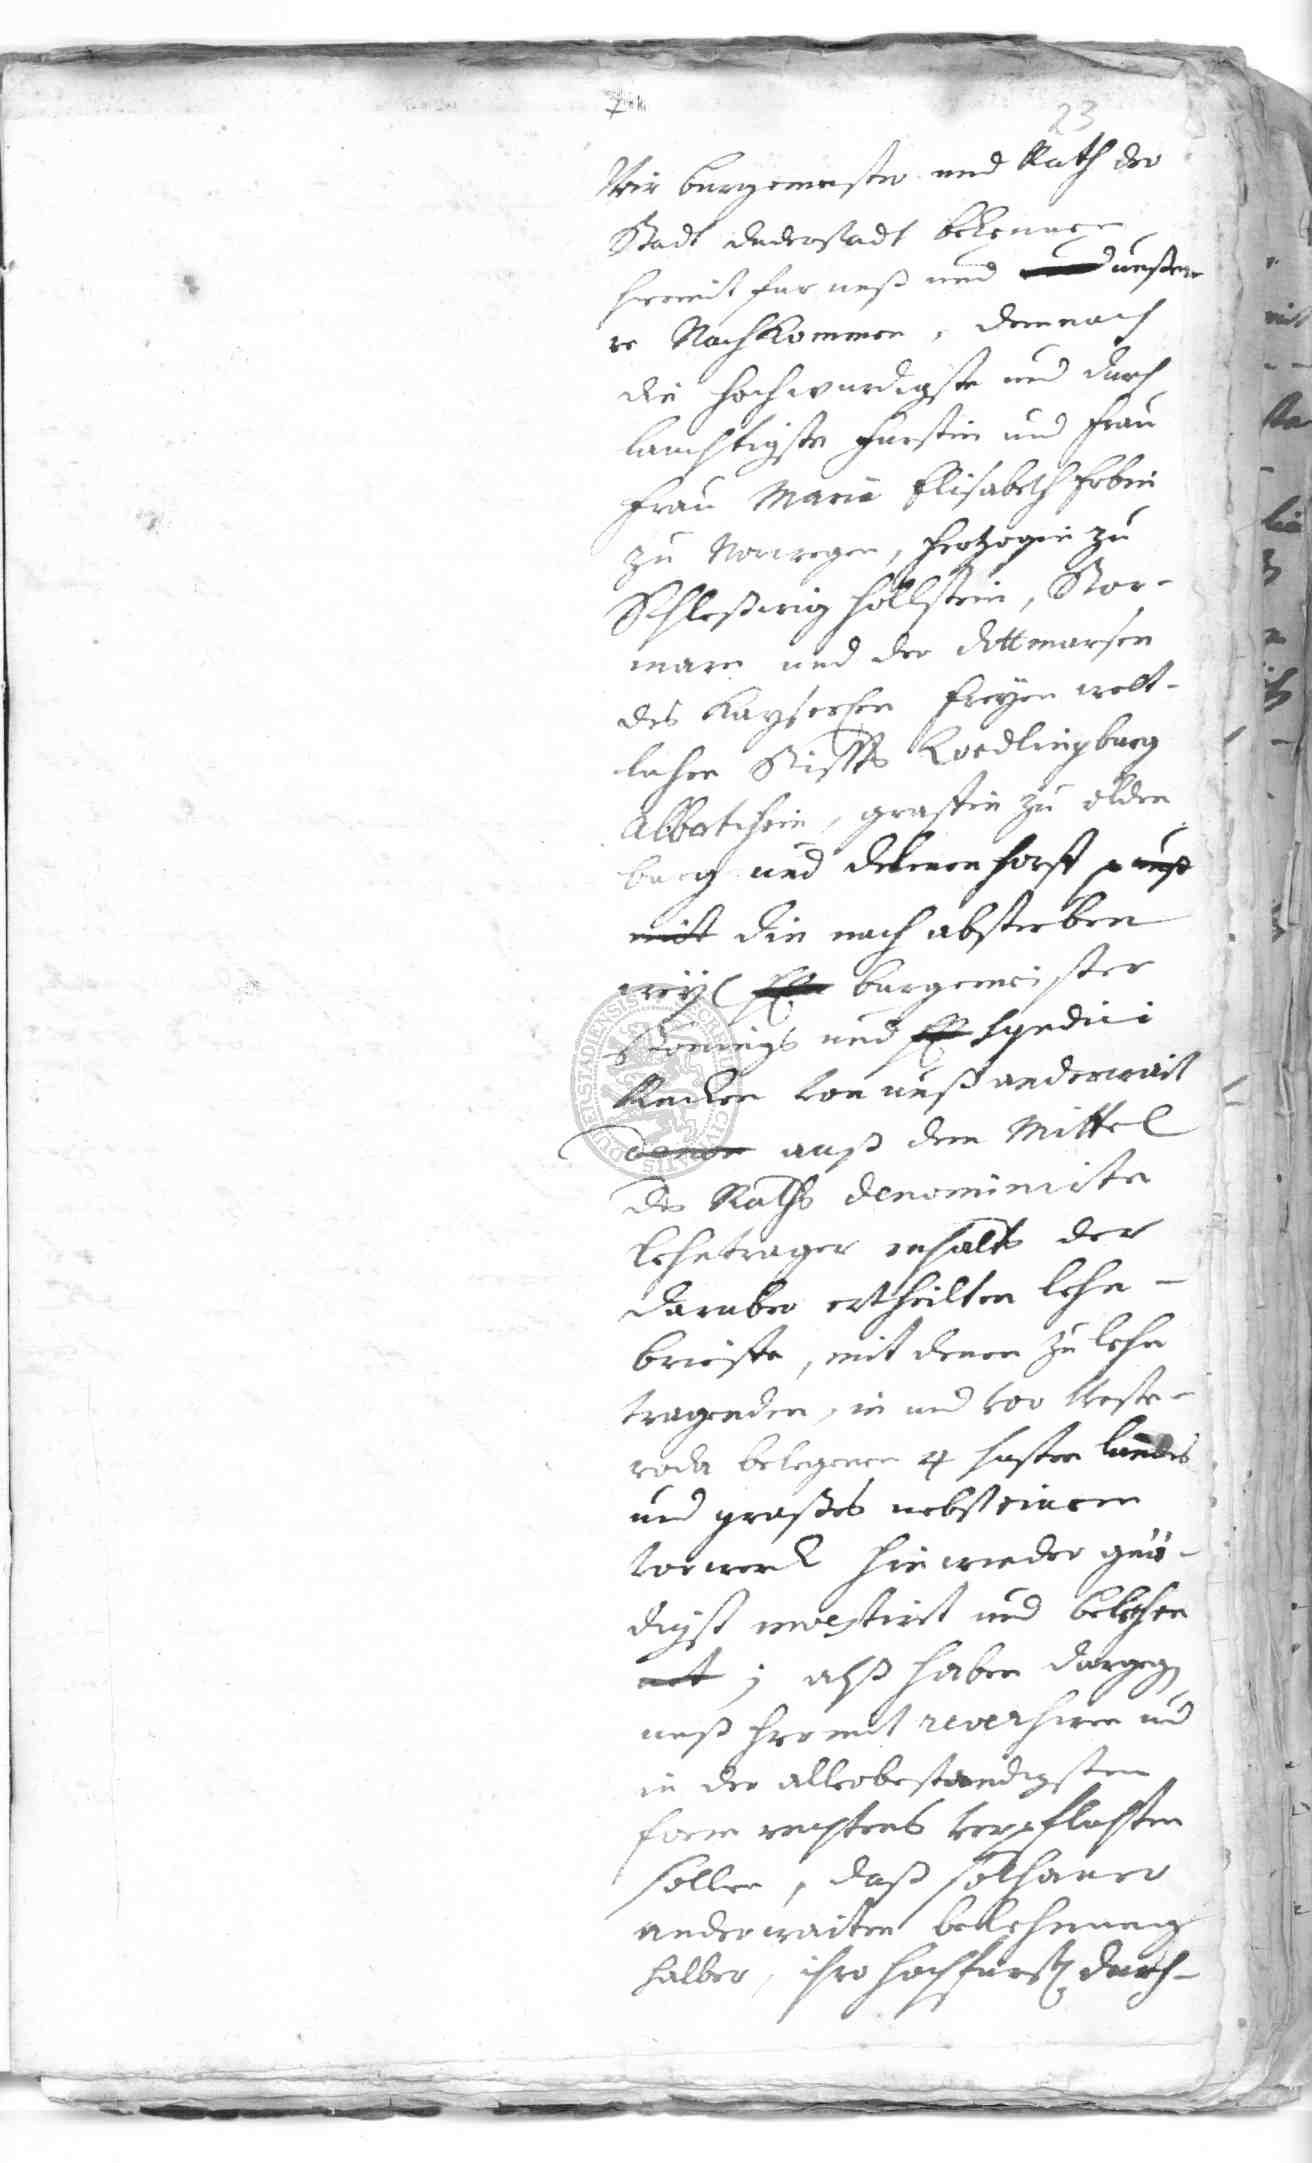 23
Wir burgemeister und Rath der
Stadt duderstadt bekennen
hiermit fur unß und unßere
re Nachkommen, demnach
die hochwurdigste und durch
lauchtigste furstin und frau
frau Maria Elisabeth Erbin
zu Norwegen, Hertzogin zu
Schleßwig Hollstein, Stor-
marn und der dittmarsen
des Kayserlichen freyen welt-
lichen Stiffts Quedlingburg
Abbatißin, graffin zu olden
burg und delmenhorst unß
mit die nach absterben
weyl burgemeister
und Syndici
von unß anderwait
auß dem Mittel
des Raths denominirte
lehntrager inhalts der
daruber ertheilten lehn-
brieffe, mit denen zu lehn
tragenden, in und vor Weste-
roda belegenen 4 huffen landes
und graßes nebst einem
vorwerck hinwieder gnä-
digst investirt und belehn
net; alß haben dargegen
unß hiermit reversiren und
in der allerbestandigsten
form rechtens verpflichten
sollen, daß solhaner
anderwaiten belehnung
halber, ihro hochfurstl durch-